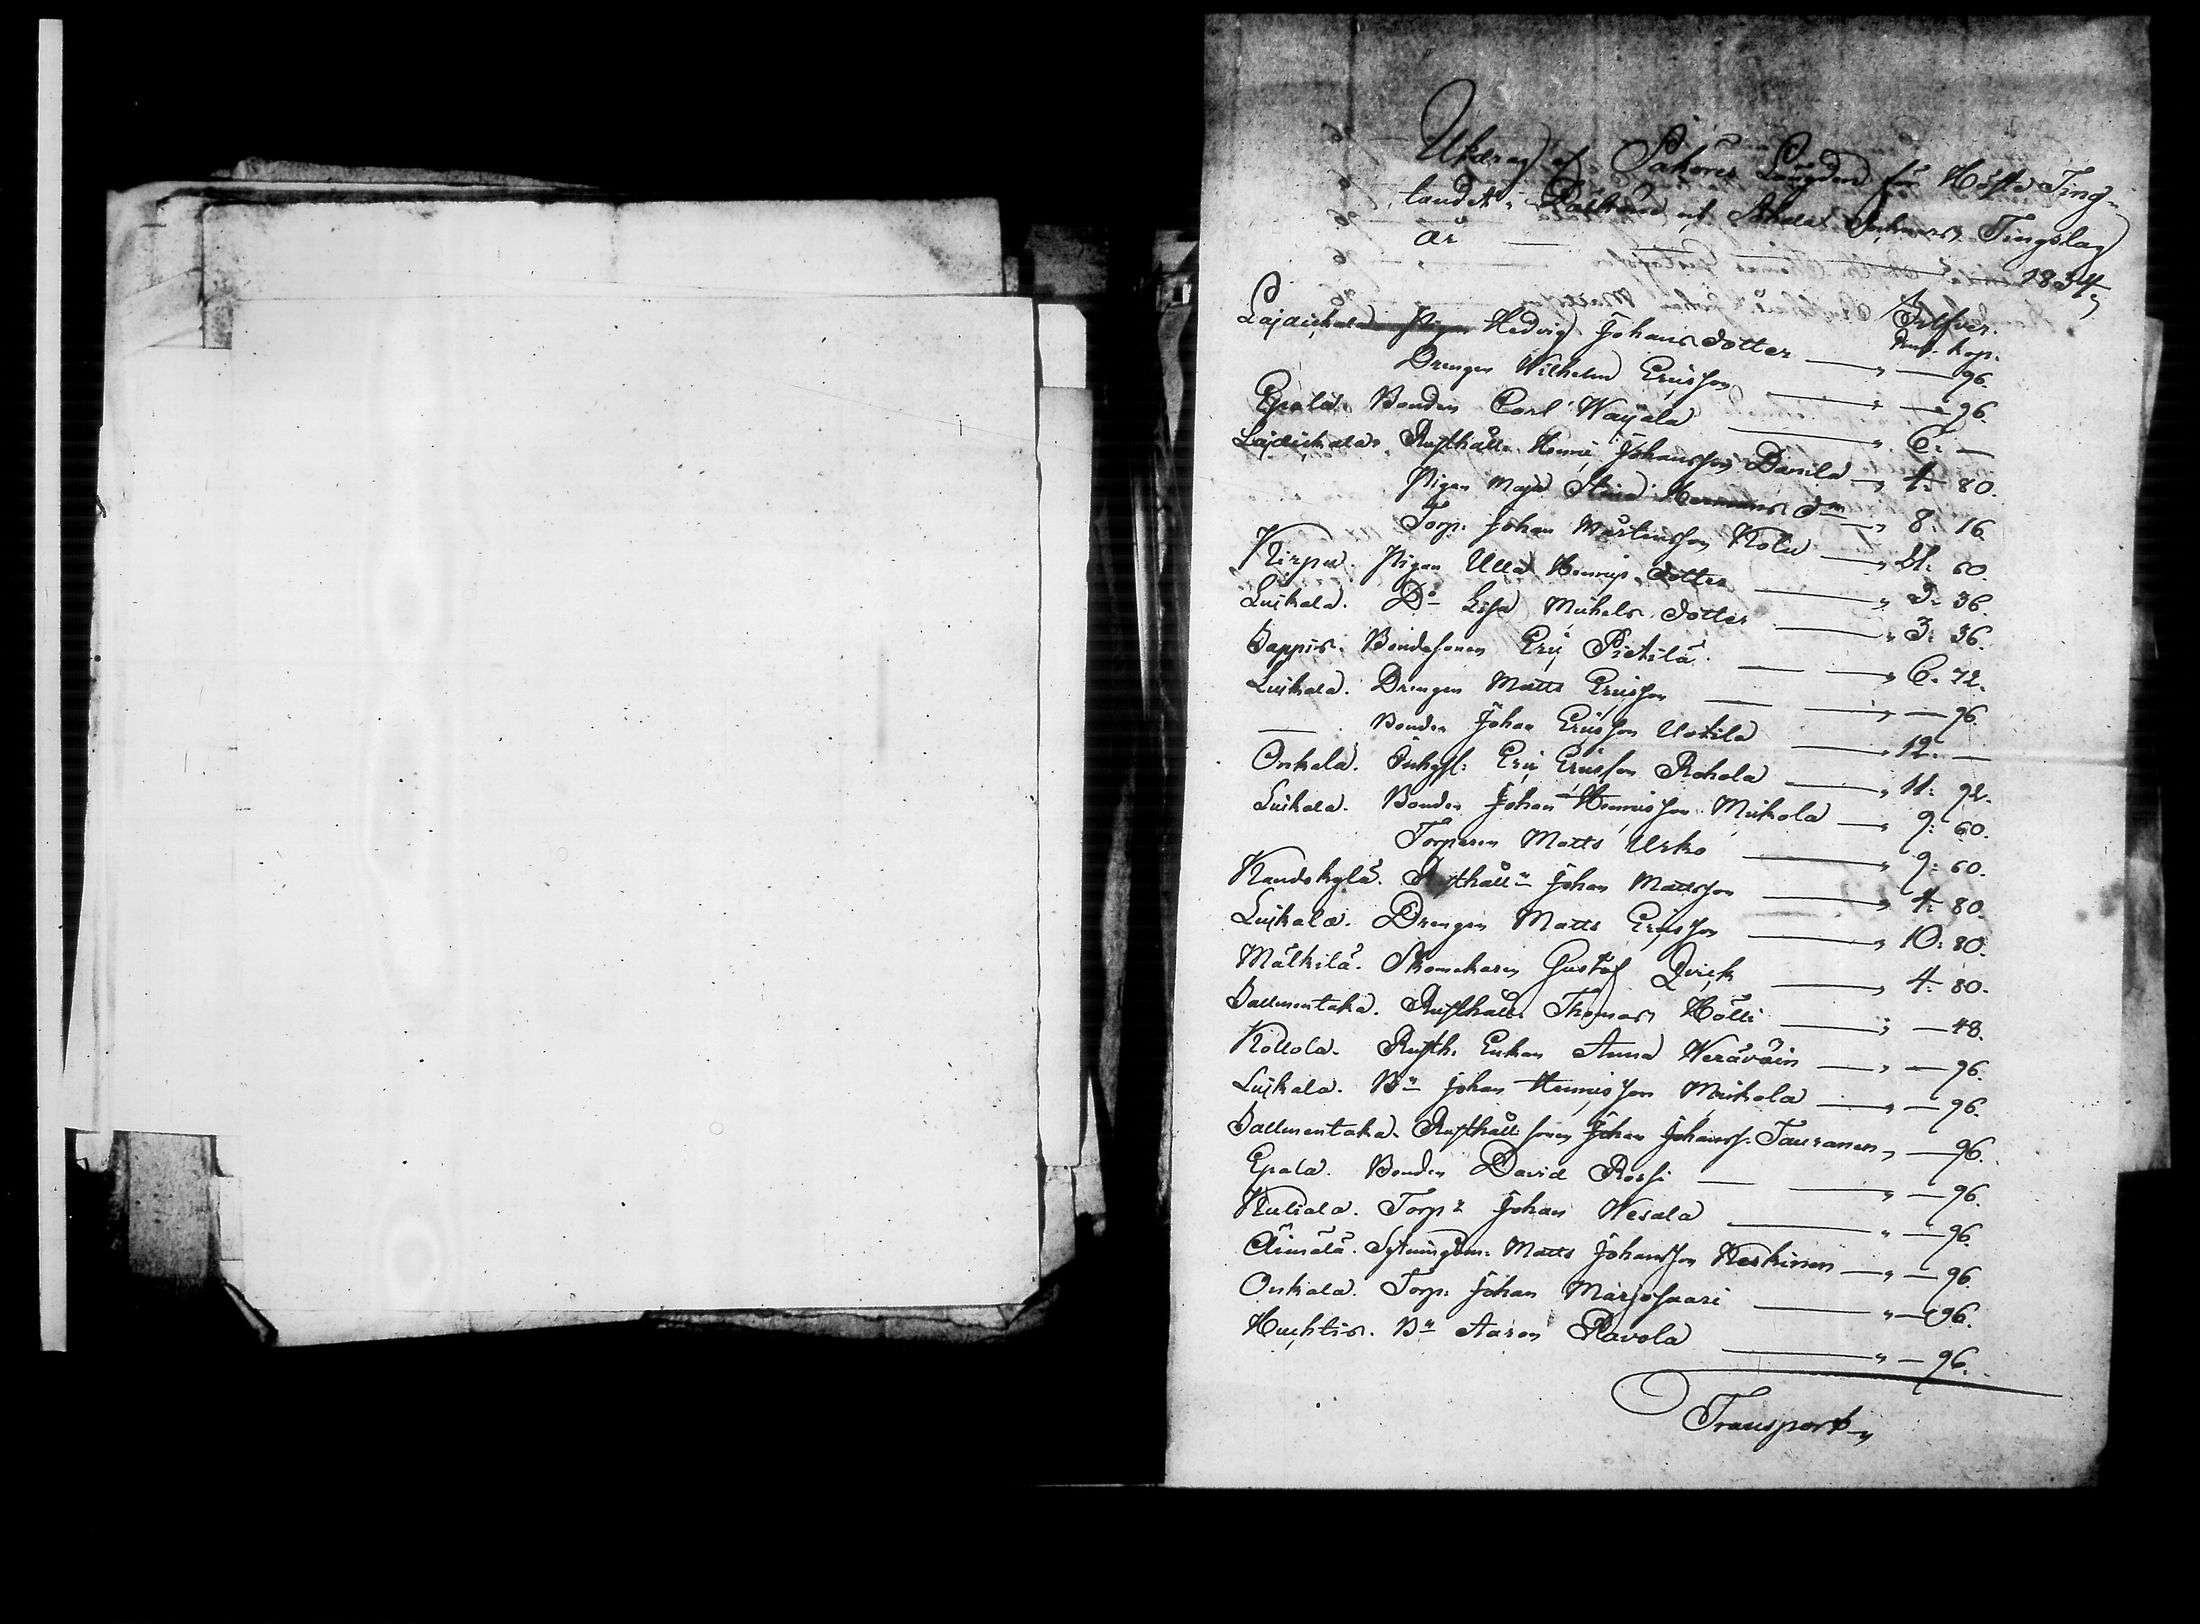 Utdrag af Saköres Längden för Höste Ting-
landet i Tingslag
år 1834,
Silfver.
Rub. kop.
Pigan Hedvig Johans dotter — " — 96.
Drengen Wilhelm Ericsson — " — 96.
Epala. Bonden Carl Wayala — " 6: —
Rusthåll. Henric Johansson Danila — " 4: 80.
Pigan Maja Stina Hermans dr — " 8: 16.
Torp. Johan Mårtensson Kolu — " 21: 60.
Kirpu. Pigan Ulla Henrics dotter — " 3: 36.
Luikala. Do Lisa Michels dotter — " 3: 36.
Sappis. Bondesonen Eric Pietilä — " 6: 72.
Luikala. Drengen Matts Ericsson — " — 96.
— Bonden Johan Ericsson Uotila — " 12: —
Onkala. Inhys: Eric Ericsson Rohola — " 11: 92.
Luikala. Bonden Johan Henricsson Mickola — " 9: 60.
Torparen Matts Urko — " 9: 60.
Kandokylä. Rusthålln Johan Mattsson — " 4: 80.
Luikala. Drengen Matts Ericsson — " 10: 80.
Mälkilä. Skomakaren Gustaf Qvick — " 4: 80.
Sallmentaka. Rusthåll. Thomas Hölli — " — 48.
Kollola. Rusth. Enkan Anna Heräväin — " — 96.
Luikala. Bn Johan Henricsson Mickola — " — 96.
Sallmentaka. Rusthåll. sonen Johan Johanss. Tauranen " — 96.
Epala. Bonden David Rossi — " — 96.
Kuliala. Torpn Johan Wesala — " — 96.
Äimälä. Sytningsm. Matts Johansson Keskinen — " — 96.
Onkala. Torp. Johan Marjosaari — " — 96.
Huchtis. Bn Aaron Ravola — " — 96.
Transport "